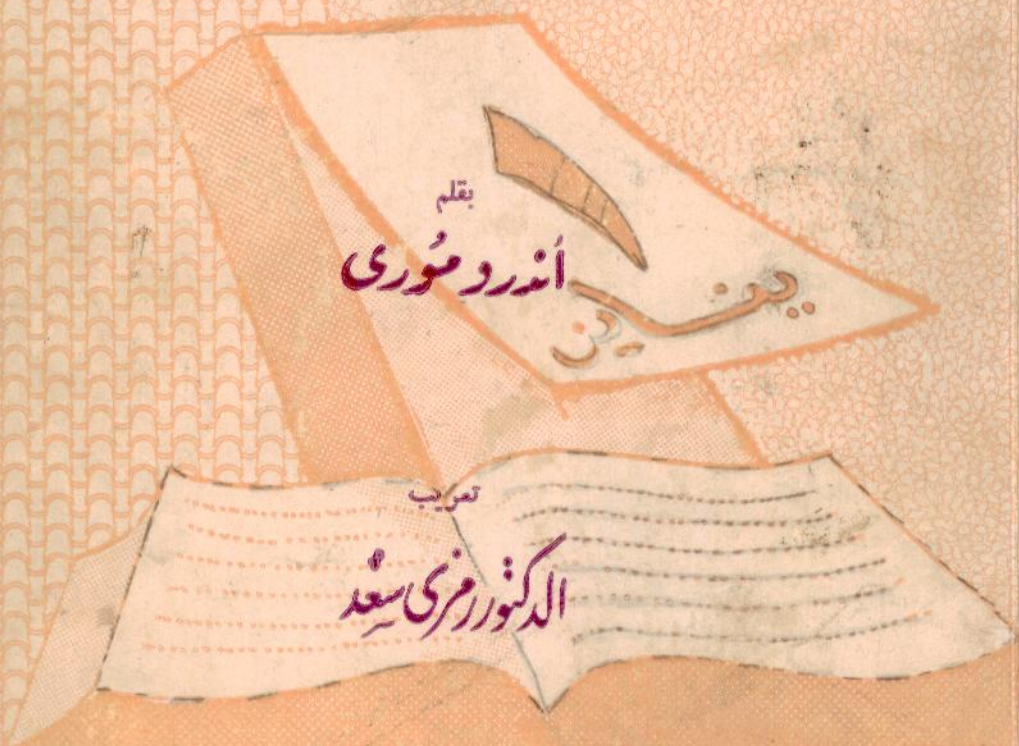 بقلم
أندرو مُورى
١
تعريب
الدكتور رمزى سعد